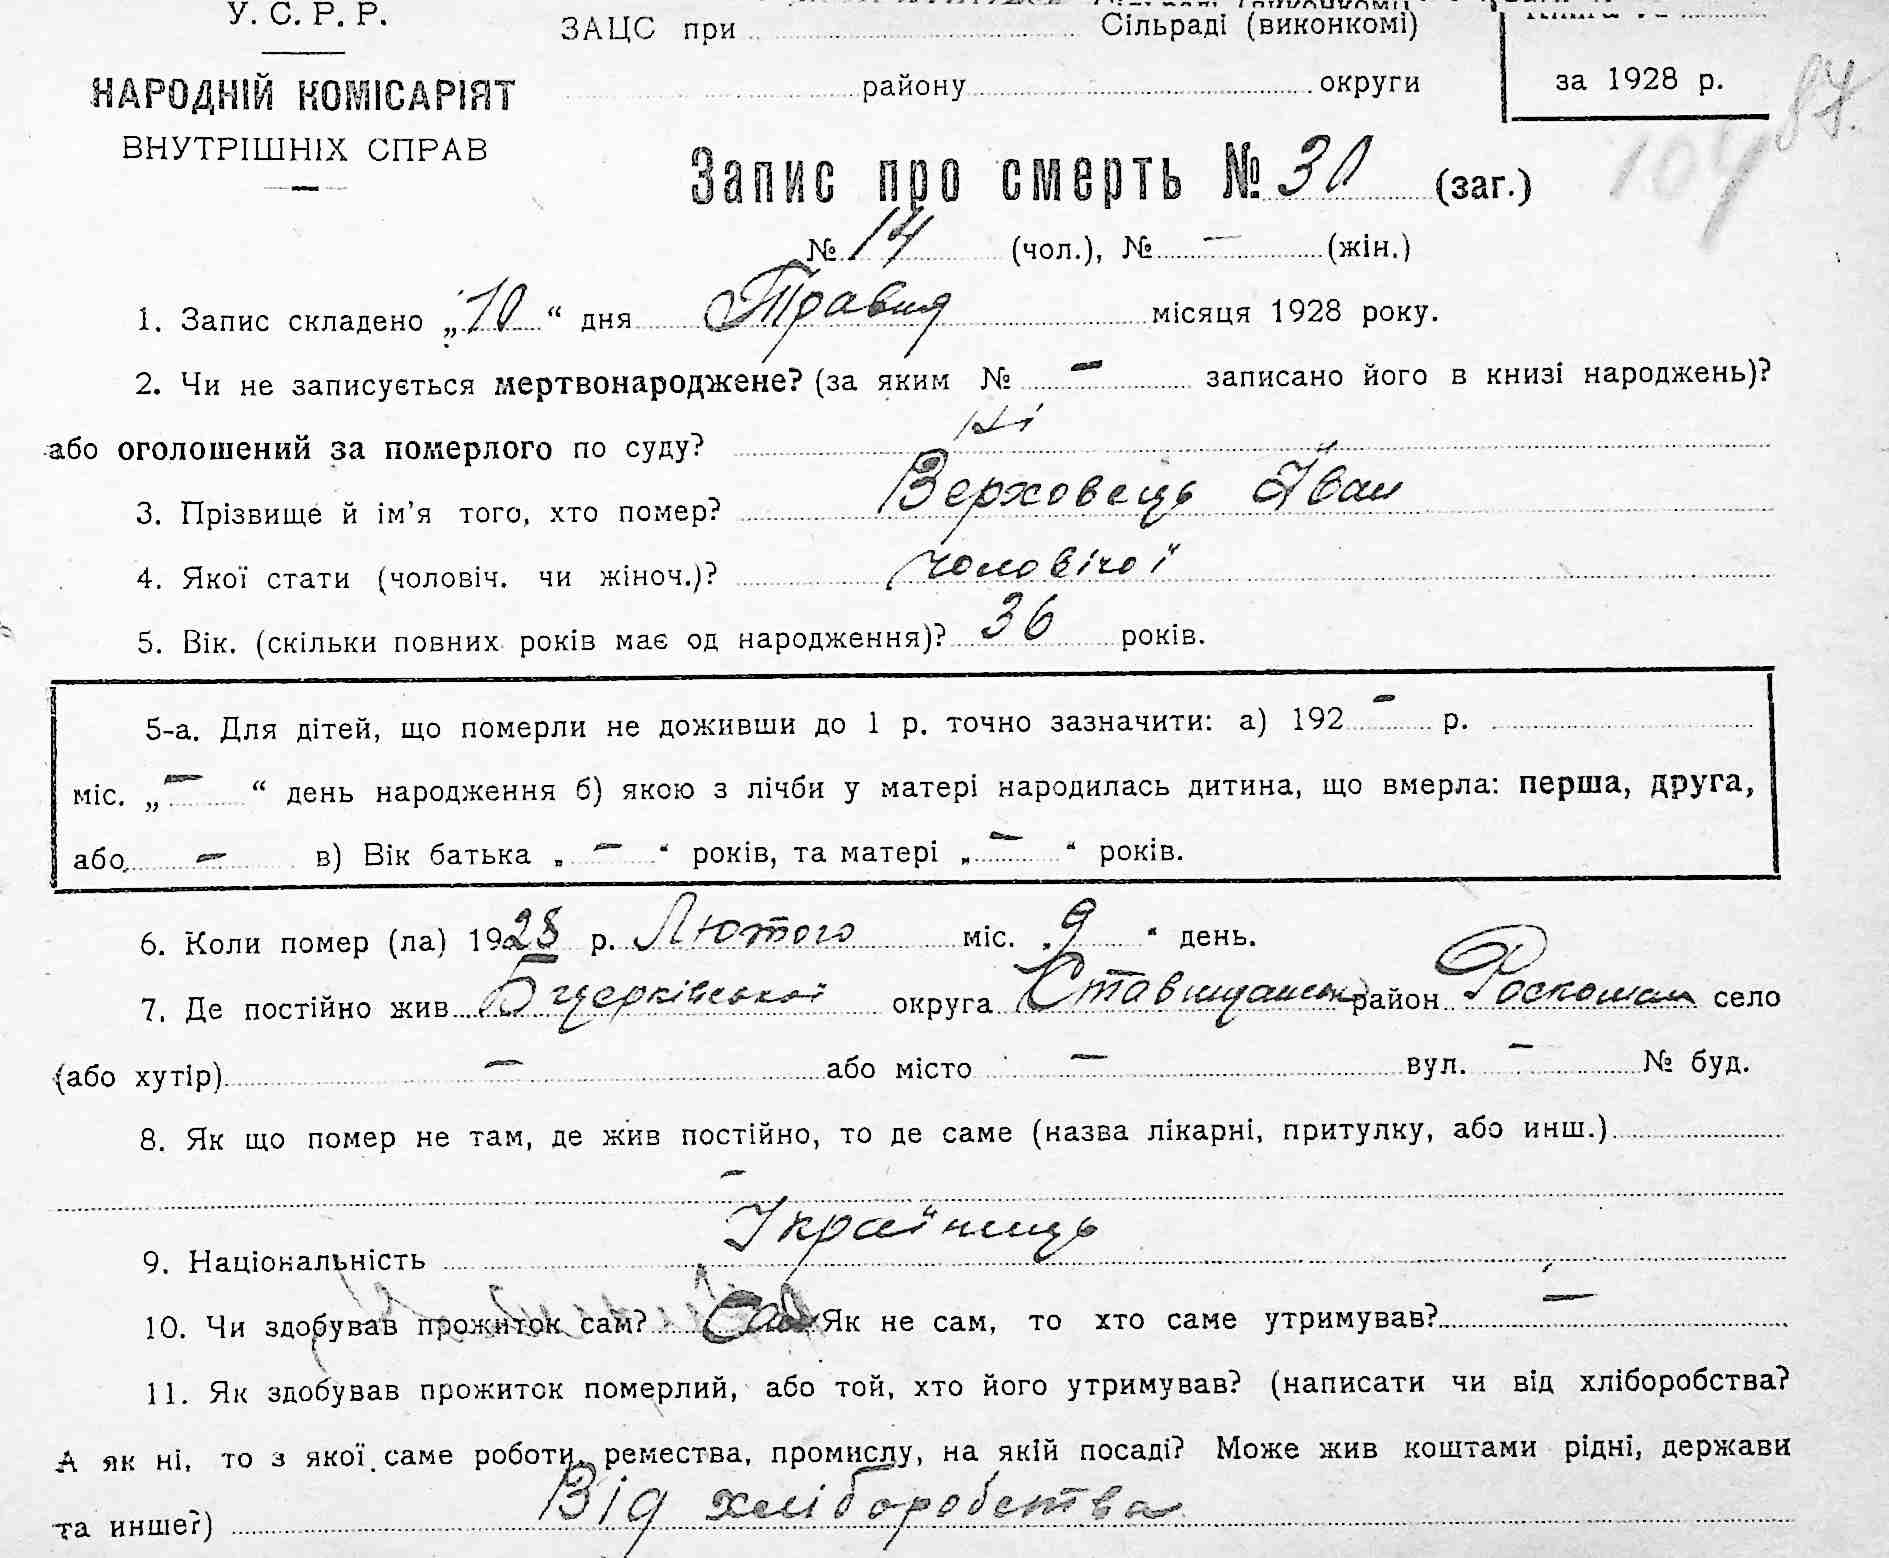 У. С. Р. Р.
НАРОДНІЙ КОМІСАРІЯТ
ВНУТРІШНІХ СПРАВ
ЗАЦС при Сільраді (виконкомі)
району округи
за 1928 р.
87.
104
Запис про смерть № 30 (заг.)
№ 14 (чол.), № – (жін.)
1. Запис складено „10“ дня Травня місяця 1928 року.
2. Чи не записується мертвонароджене? (за яким № – записано його в книзі народжень)?
або оголошений за померлого по суду? Ні
3. Прізвище й ім'я того, хто помер? Верховець Іван
4. Якої стати (чоловіч. чи жіноч.)? чоловічої
5. Вік. (скільки повних років має од народження)? 36 років.
5-а. Для дітей, що померли не доживши до 1 р. точно зазначити: а) 192 – р.
міс. „ – “ день народження б) якою з лічби у матері народилась дитина, що вмерла: перша, друга,
або – в) Вік батька „ – “ років, та матері „ – “ років.
6. Коли помер (ла) 1928 р. Лютого міс. 9 “ день.
7. Де постійно жив Б церківської округа Ставищанськ район Роскошна село
(або хутір) – або місто – вул. – № буд.
8. Як що помер не там, де жив постійно, то де саме (назва лікарні, притулку, або инш.)
–
9. Національність Українець
10. Чи здобував прожиток сам? Сам Як не сам, то хто саме утримував? –
11. Як здобував прожиток померлий, або той, хто його утримував? (написати чи від хліборобства?
А як ні, то з якої саме роботи, ремества, промислу, на якій посаді? Може жив коштами рідні, держави
та инше?) Від хліборобства